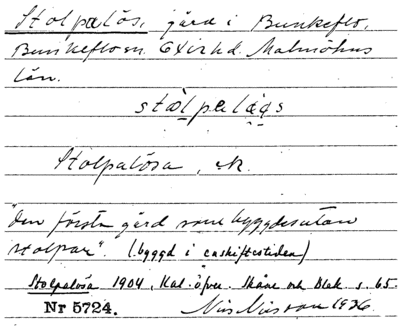 Stolpalös, gård i Bunkeflo,
Bunkeflo sn. Oxie hd. Malmöhus
län.
stålpalågs
Stolpalösa, ek.
"den första gård som byggdes utan
stolpar". (byggd i enskiftestiden)
Stolpalösa 1904, Kal. öfver. Skåne och Blek. s. 65.
Nr 5724. Nils Nilsson 1936